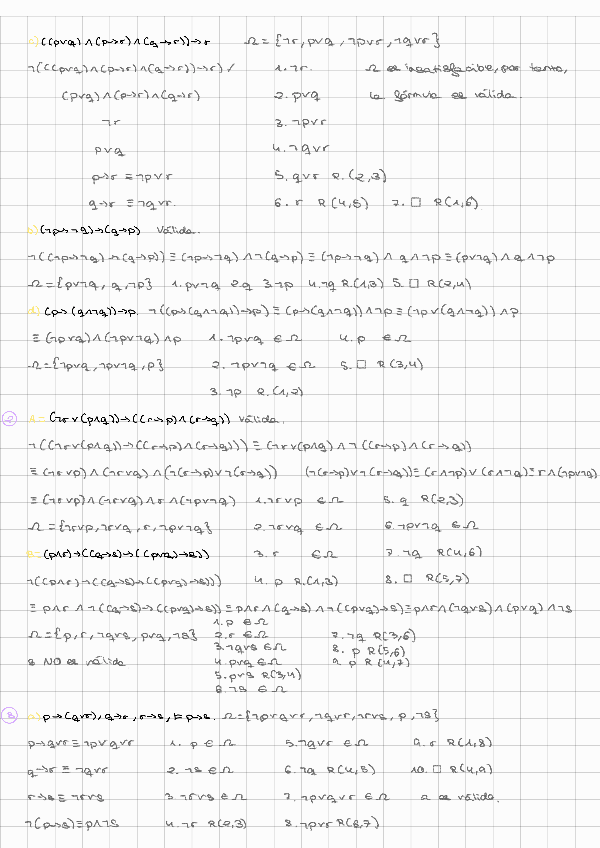 a) ((p∨q)∧(p→r)∧(q→r))→r Ω={¬r, p∨q, ¬p∨r, ¬q∨r}
¬(((p∨q)∧(p→r)∧(q→r))→r) / 1. ¬r. Ω es insatisfacible, por tanto,
(p∨q)∧(p→r)∧(q→r) 2. p∨q la fórmula es válida.
¬r 3. ¬p∨r
p∨q 4. ¬q∨r
p→r ≡ ¬p∨r 5. q∨r R.(2,3)
q→r ≡ ¬q∨r. 6. r R(4,5) 7. □ R(1,6)
b) (¬p→¬q)→(q→p) Válida.
¬((¬p→¬q)→(q→p)) ≡ (¬p→¬q)∧¬(q→p) ≡ (¬p→¬q)∧q∧¬p ≡ (p∨¬q)∧q∧¬p
Ω={p∨¬q, q, ¬p} 1. p∨¬q 2 q 3 ¬p 4. ¬q R(1,3) 5. □ R(2,4)
(p→(q∧¬q))→p. ¬((p→(q∧¬q))→p) ≡ (p→(q∧¬q))∧¬p ≡ (¬p∨(q∧¬q))∧p
≡ (¬p∨q)∧(¬p∨¬q)∧p 1. ¬p∨q ∈Ω 4. p ∈Ω
Ω={¬p∨q, ¬p∨¬q, p} 2. ¬p∨¬q ∈Ω 5. □ R(3,4)
3. ¬p R.(1,2)
2 (¬r∨(p∧q))→((r→p)∧(r→q)) Válida.
¬((¬r∨(p∧q))→((r→p)∧(r→q))) ≡ (¬r∨(p∧q))∧¬((r→p)∧(r→q))
≡ (¬r∨p)∧(¬r∨q)∧(¬(r→p)∨¬(r→q)) (¬(r→p)∨¬(r→q)) ≡ (r∧¬p)∨(r∧¬q) ≡ r∧(¬p∨¬q).
≡ (¬r∨p)∧(¬r∨q)∧r∧(¬p∨¬q) 1. ¬r∨p ∈Ω 5. q R(2,3)
Ω={¬r∨p, ¬r∨q, r, ¬p∨¬q} 2. ¬r∨q ∈Ω 6. ¬p∨¬q ∈Ω
(p∧r)→((q→s)→((p∨q)→s)) 3. r ∈Ω 7. ¬q R(4,6)
¬((p∧r)→((q→s)→((p∨q)→s))) 4. p R.(1,3) 8. □ R(5,7)
≡ p∧r∧¬((q→s)→((p∨q)→s)) ≡ p∧r∧(q→s)∧¬((p∨q)→s) ≡ p∧r∧(¬q∨s)∧(p∨q)∧¬s
1. p ∈Ω
Ω={p, r, ¬q∨s, p∨q, ¬s} 2. r ∈Ω 7. ¬q R(3,6)
3. ¬q∨s ∈Ω 8. p R(5,6)
NO es válida 4. p∨q ∈Ω 9. p R(4,7)
5. p∨s R(3,4)
6. ¬s ∈Ω
3 a) p→(q∨r), q→r, r→s, ⊨ p→s. Ω={¬p∨q∨r, ¬q∨r, ¬r∨s, p, ¬s}
p→q∨r ≡ ¬p∨q∨r 1. p ∈Ω 5. ¬q∨r ∈Ω 9. r R(1,8)
q→r ≡ ¬q∨r 2. ¬s ∈Ω 6. ¬q R(4,5) 10. □ R(4,9)
r→s ≡ ¬r∨s 3 ¬r∨s ∈Ω 7. ¬p∨q∨r ∈Ω a es válida.
¬(p→s) ≡ p∧¬s 4. ¬r R(2,3) 8. ¬p∨r R(6,7)